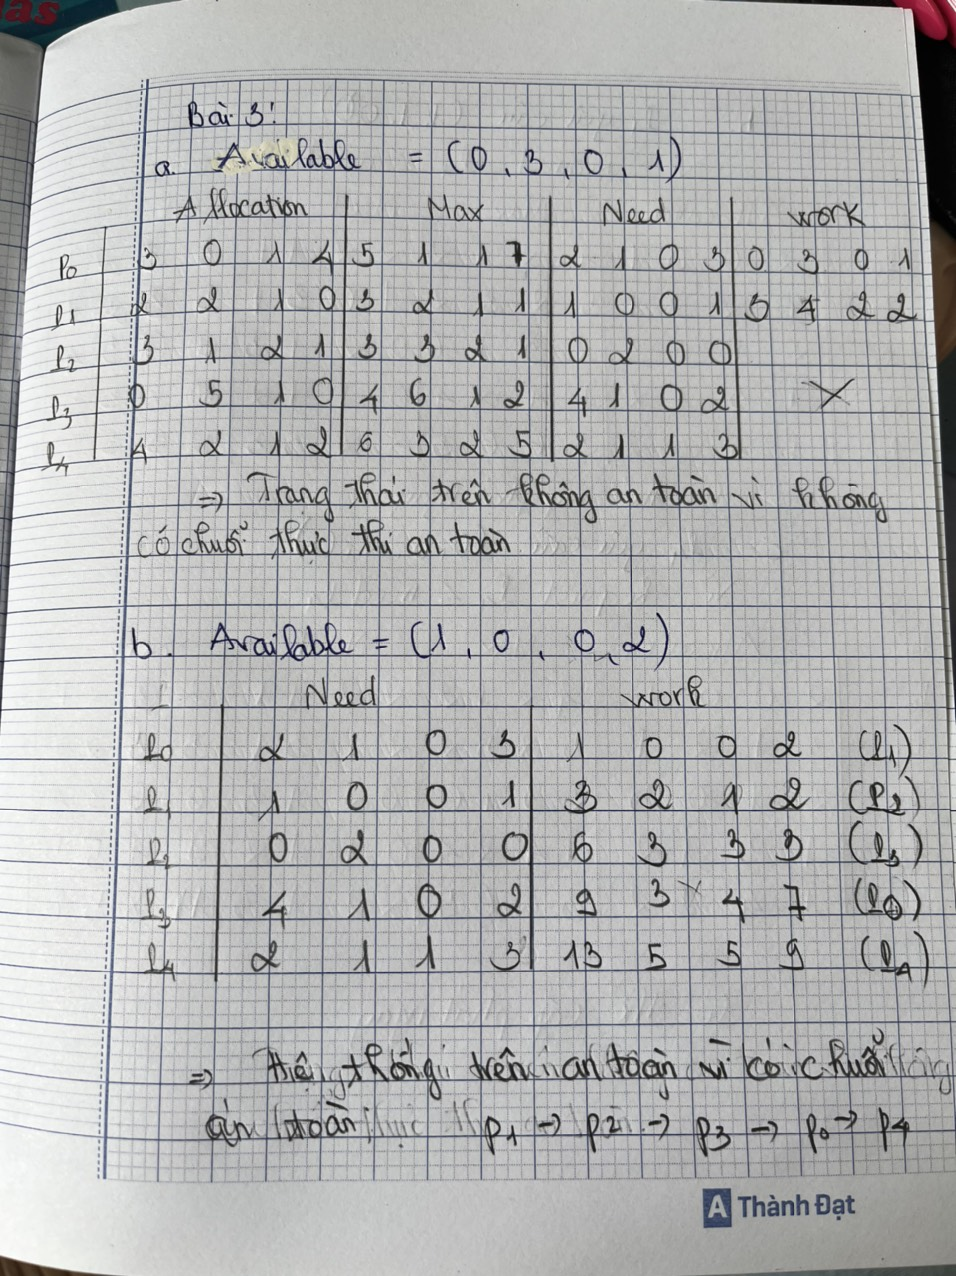 as
Bài 3:
a. Available = (0, 3, 0, 1)
Allocation Max Need work
P0 3 0 1 4 5 1 1 7 2 1 0 3 0 3 0 1
P1 2 2 1 0 3 2 1 1 1 0 0 1 3 4 2 2
P2 3 1 2 1 3 3 2 1 0 2 0 0
P3 0 5 1 0 4 6 1 2 4 1 0 2 X
P4 4 2 1 2 6 3 2 5 2 1 1 3
=> Trạng thái trên không an toàn vì không
có chuỗi thực thi an toàn
b. Available = (1, 0, 0, 2)
Need work
P0 2 1 0 3 1 0 0 2 (P1)
P1 1 0 0 1 3 2 1 2 (P2)
P2 0 2 0 0 6 3 3 3 (P3)
P3 4 1 0 2 9 3 4 7 (P0)
P4 2 1 1 3 13 5 5 9 (P4)
=> Hệ thống trên an toàn vì có chuỗi
an toàn P1 -> P2 -> P3 -> P0 -> P4
A Thành Đạt